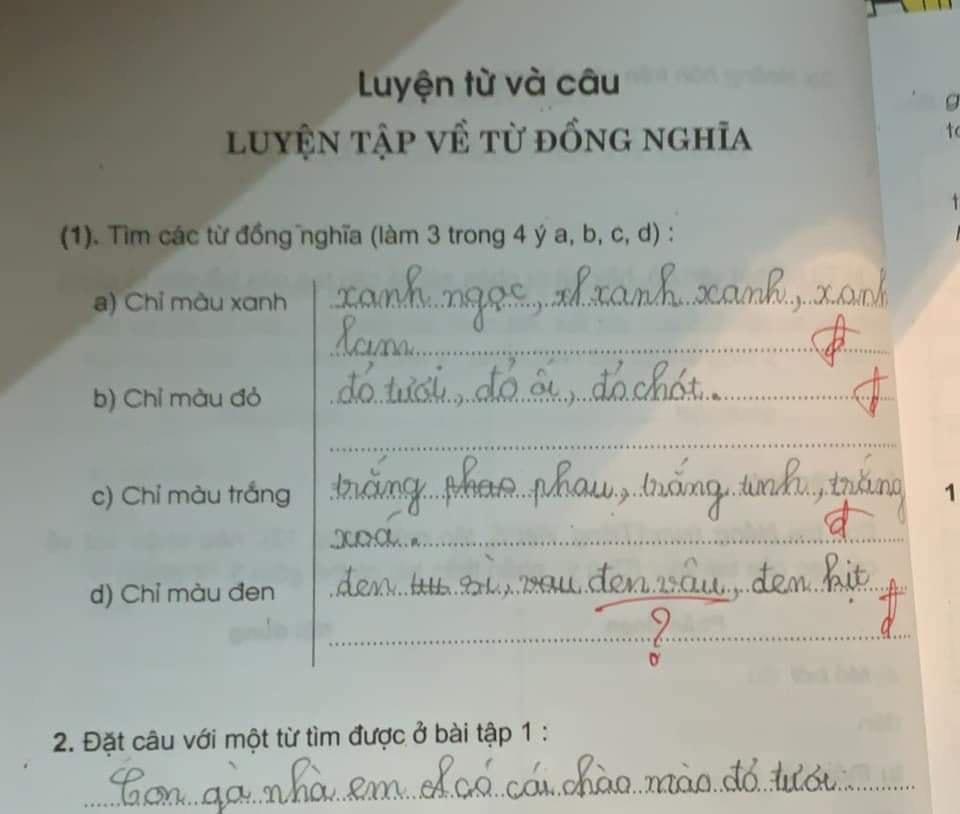 Luyện từ và câu
LUYỆN TẬP VỀ TỪ ĐỒNG NGHĨA
(1). Tìm các từ đồng nghĩa (làm 3 trong 4 ý a, b, c, d) :
a) Chỉ màu xanh xanh ngọc, xanh xanh, xanh
lam
đ
b) Chỉ màu đỏ đỏ tươi, đỏ ối, đỏ chót.
đ
c) Chỉ màu trắng trắng phao phau, trắng tinh, trắng
xoá.
đ
d) Chỉ màu đen đen sì, vau đen vâu, đen kịt
? đ
2. Đặt câu với một từ tìm được ở bài tập 1 :
Con gà nhà em có cái chào mào đỏ tươi
1